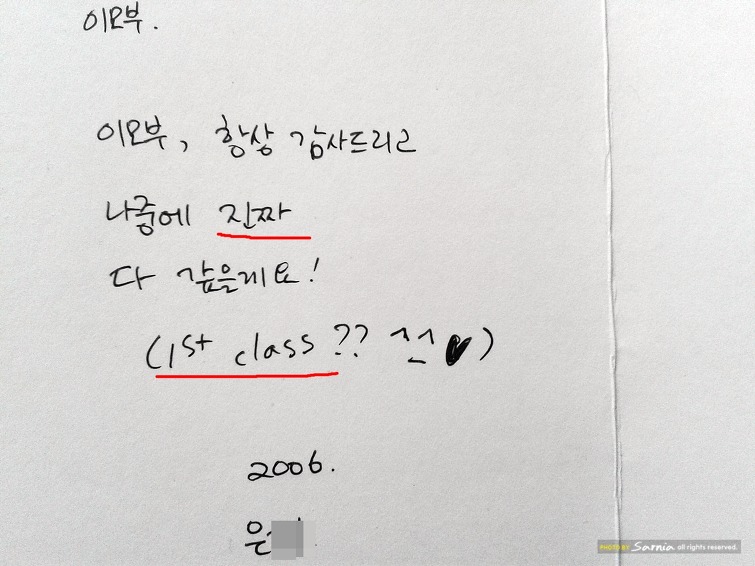 이모부.
이모부, 항상 감사드리고
나중에 진짜
다 갚을게요!
(1st class ?? ^_^ ♥)
2006.
은
PHOTO BY Sarnia all rights reserved.